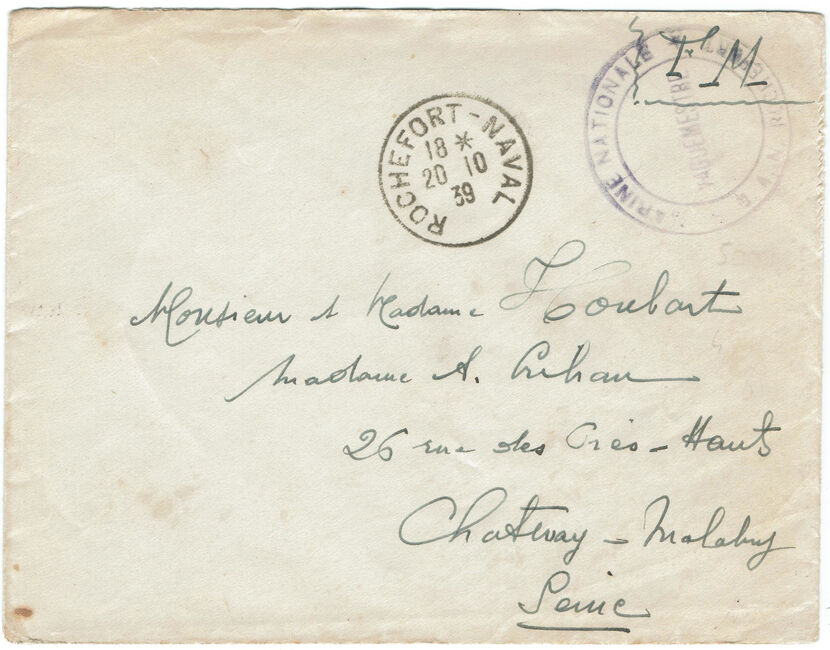 F M
MARINE NATIONALE
VAGUEMESTRE
ROCHEFORT-NAVAL
18 *
20 10
39
Monsieur & Madame Houbart
Madame A.
26 rue des Prés-Hauts
Chatenay-Malabry
Seine